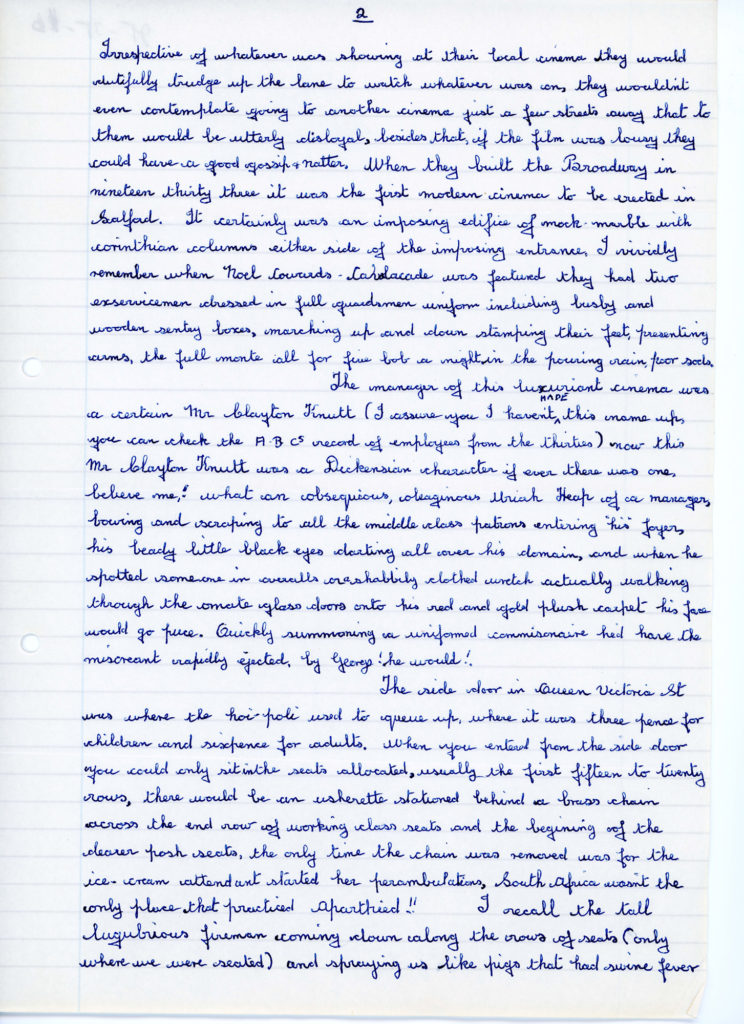 2
Irrespective of whatever was showing at their local cinema they would
dutifully trudge up the lane to watch whatever was on, they wouldn't
even contemplate going to another cinema just a few streets away that to
them would be utterly disloyal, besides that, if the film was lousy they
could have a good gossip & natter. When they built the Broadway in
nineteen thirty three it was the first modern cinema to be erected in
Salford. It certainly was an imposing edifice of mock-marble with
corinthian columns either side of the imposing entrance, I vividly
remember when Noel Cowards - Cavalacade was featured they had two
exservicemen dressed in full guardsmen uniform including busby and
wooden sentry boxes, marching up and down stamping their feet, presenting
arms, the full monte all for five bob a night, in the pouring rain, poor sods.
The manager of this luxuriant cinema was
a certain Mr Clayton Knutt (I assure you I havent MADE this name up,
you can check the A.B.Cs record of employees from the thirties) now this
Mr Clayton Knutt was a Dickensian character if ever there was one,
believe me,! what an obsequious, oleaginous Uriah Heap of a manager,
bowing and scraping to all the middle class patrons entering 'his' foyer,
his beady little black eyes darting all over his domain, and when he
spotted someone in overalls or a shabbily clothed wretch actually walking
through the ornate glass doors onto his red and gold plush carpet his face
would go puce. Quickly summoning a uniformed commisonaire hed have the
miscreant rapidly ejected, by George! he would!.
The side door in Queen Victoria St
was where the hoi-poli used to queue up, where it was three pence for
children and sixpence for adults. When you entered from the side door
you could only sit in the seats allocated, usually the first fifteen to twenty
rows, there would be an usherette stationed behind a brass chain
across the end row of working class seats and the begining of the
dearer posh seats, the only time the chain was removed was for the
ice-cream attendant started her perambulations, South Africa wasnt the
only place that practiced Aparthied!! I recall the tall
lugubrious fireman coming down along the rows of seats (only
where we were seated) and spraying us like pigs that had swine fever